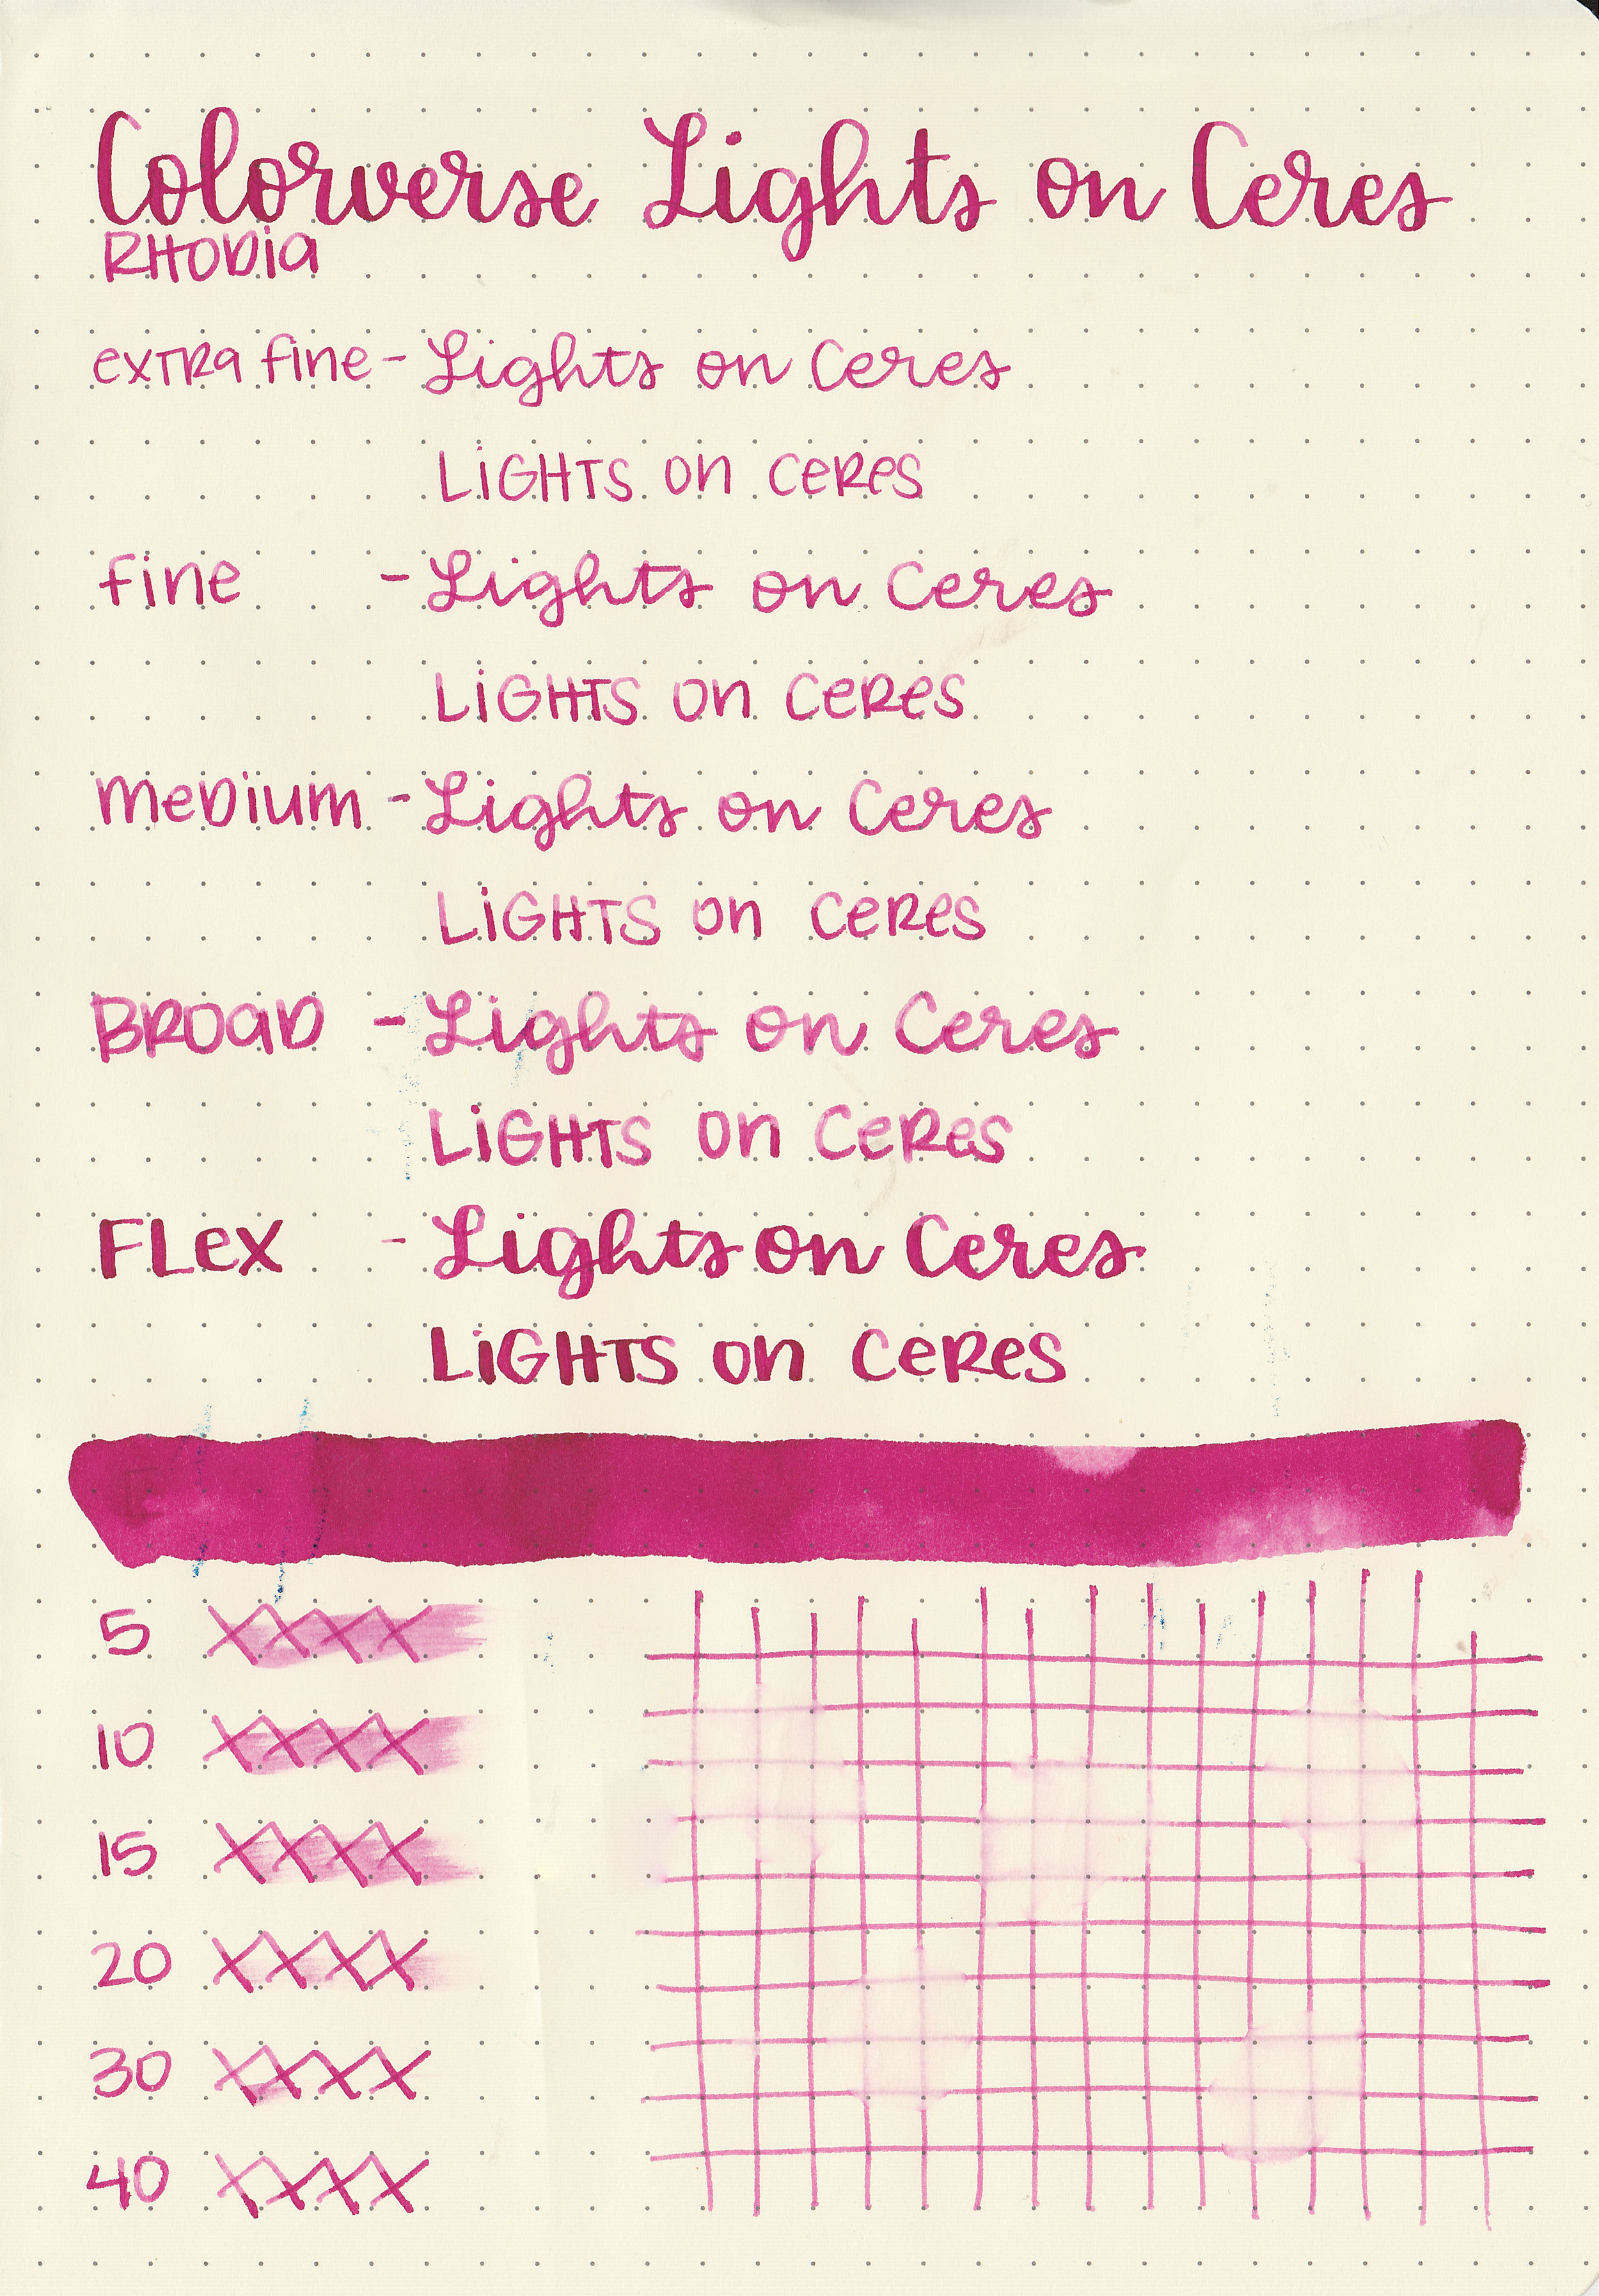 Colorverse Lights on Ceres
RHODia
exTRa fine - Lights on Ceres
LiGHTS on CeRes
fine - Lights on Ceres
LiGHTS on CeRes
meDium - Lights on Ceres
LiGHTS on CeRes
BROaD - Lights on Ceres
LiGHTS on CeRes
FLex - Lights on Ceres
LiGHTS on CeRes
5 XXXX
10 XXXX
15 XXXX
20 XXXX
30 XXXX
40 XXXX